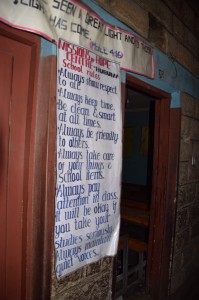 SEEN A GREAT LIGHT AND
HAS COME. Matt 4:16
MISSION OF HOPE
CENTRE
School rules
Always show respect
to all.
Always keep time.
Be clean & smart
at all times.
Always be friendly
to others.
Always take care
of your things &
School items.
Always pay
attention in class.
it will be okay if
you take your
studies seriously
Always maintain
quiet voices.